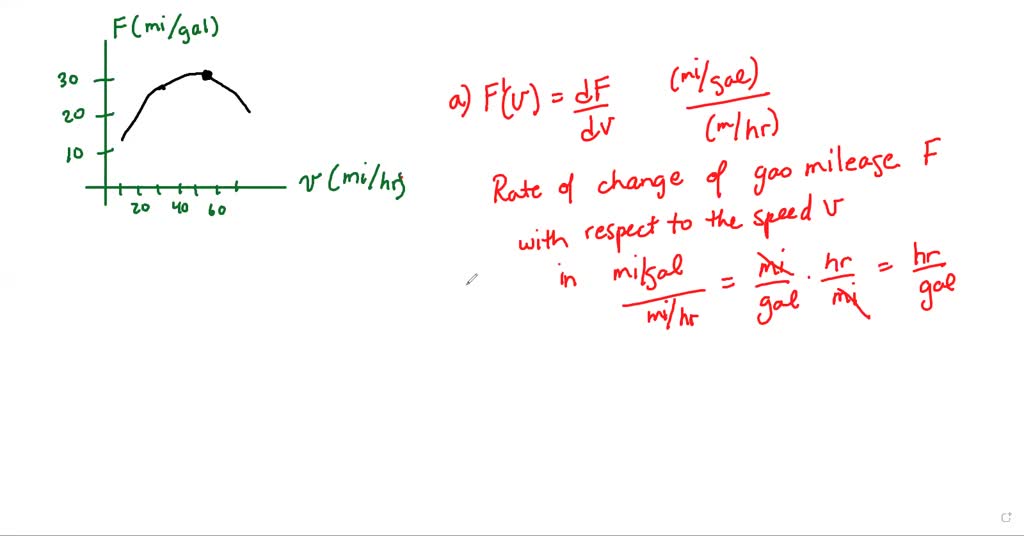 F(mi/gal)
30
20
10
20 40 60
v (mi/hr)
a) F'(v) = dF/dv (mi/gal)/(m/hr)
Rate of change of gas milease F
with respect to the speed v
in mi/gal / mi/hr = mi/gal · hr/mi = hr/gal